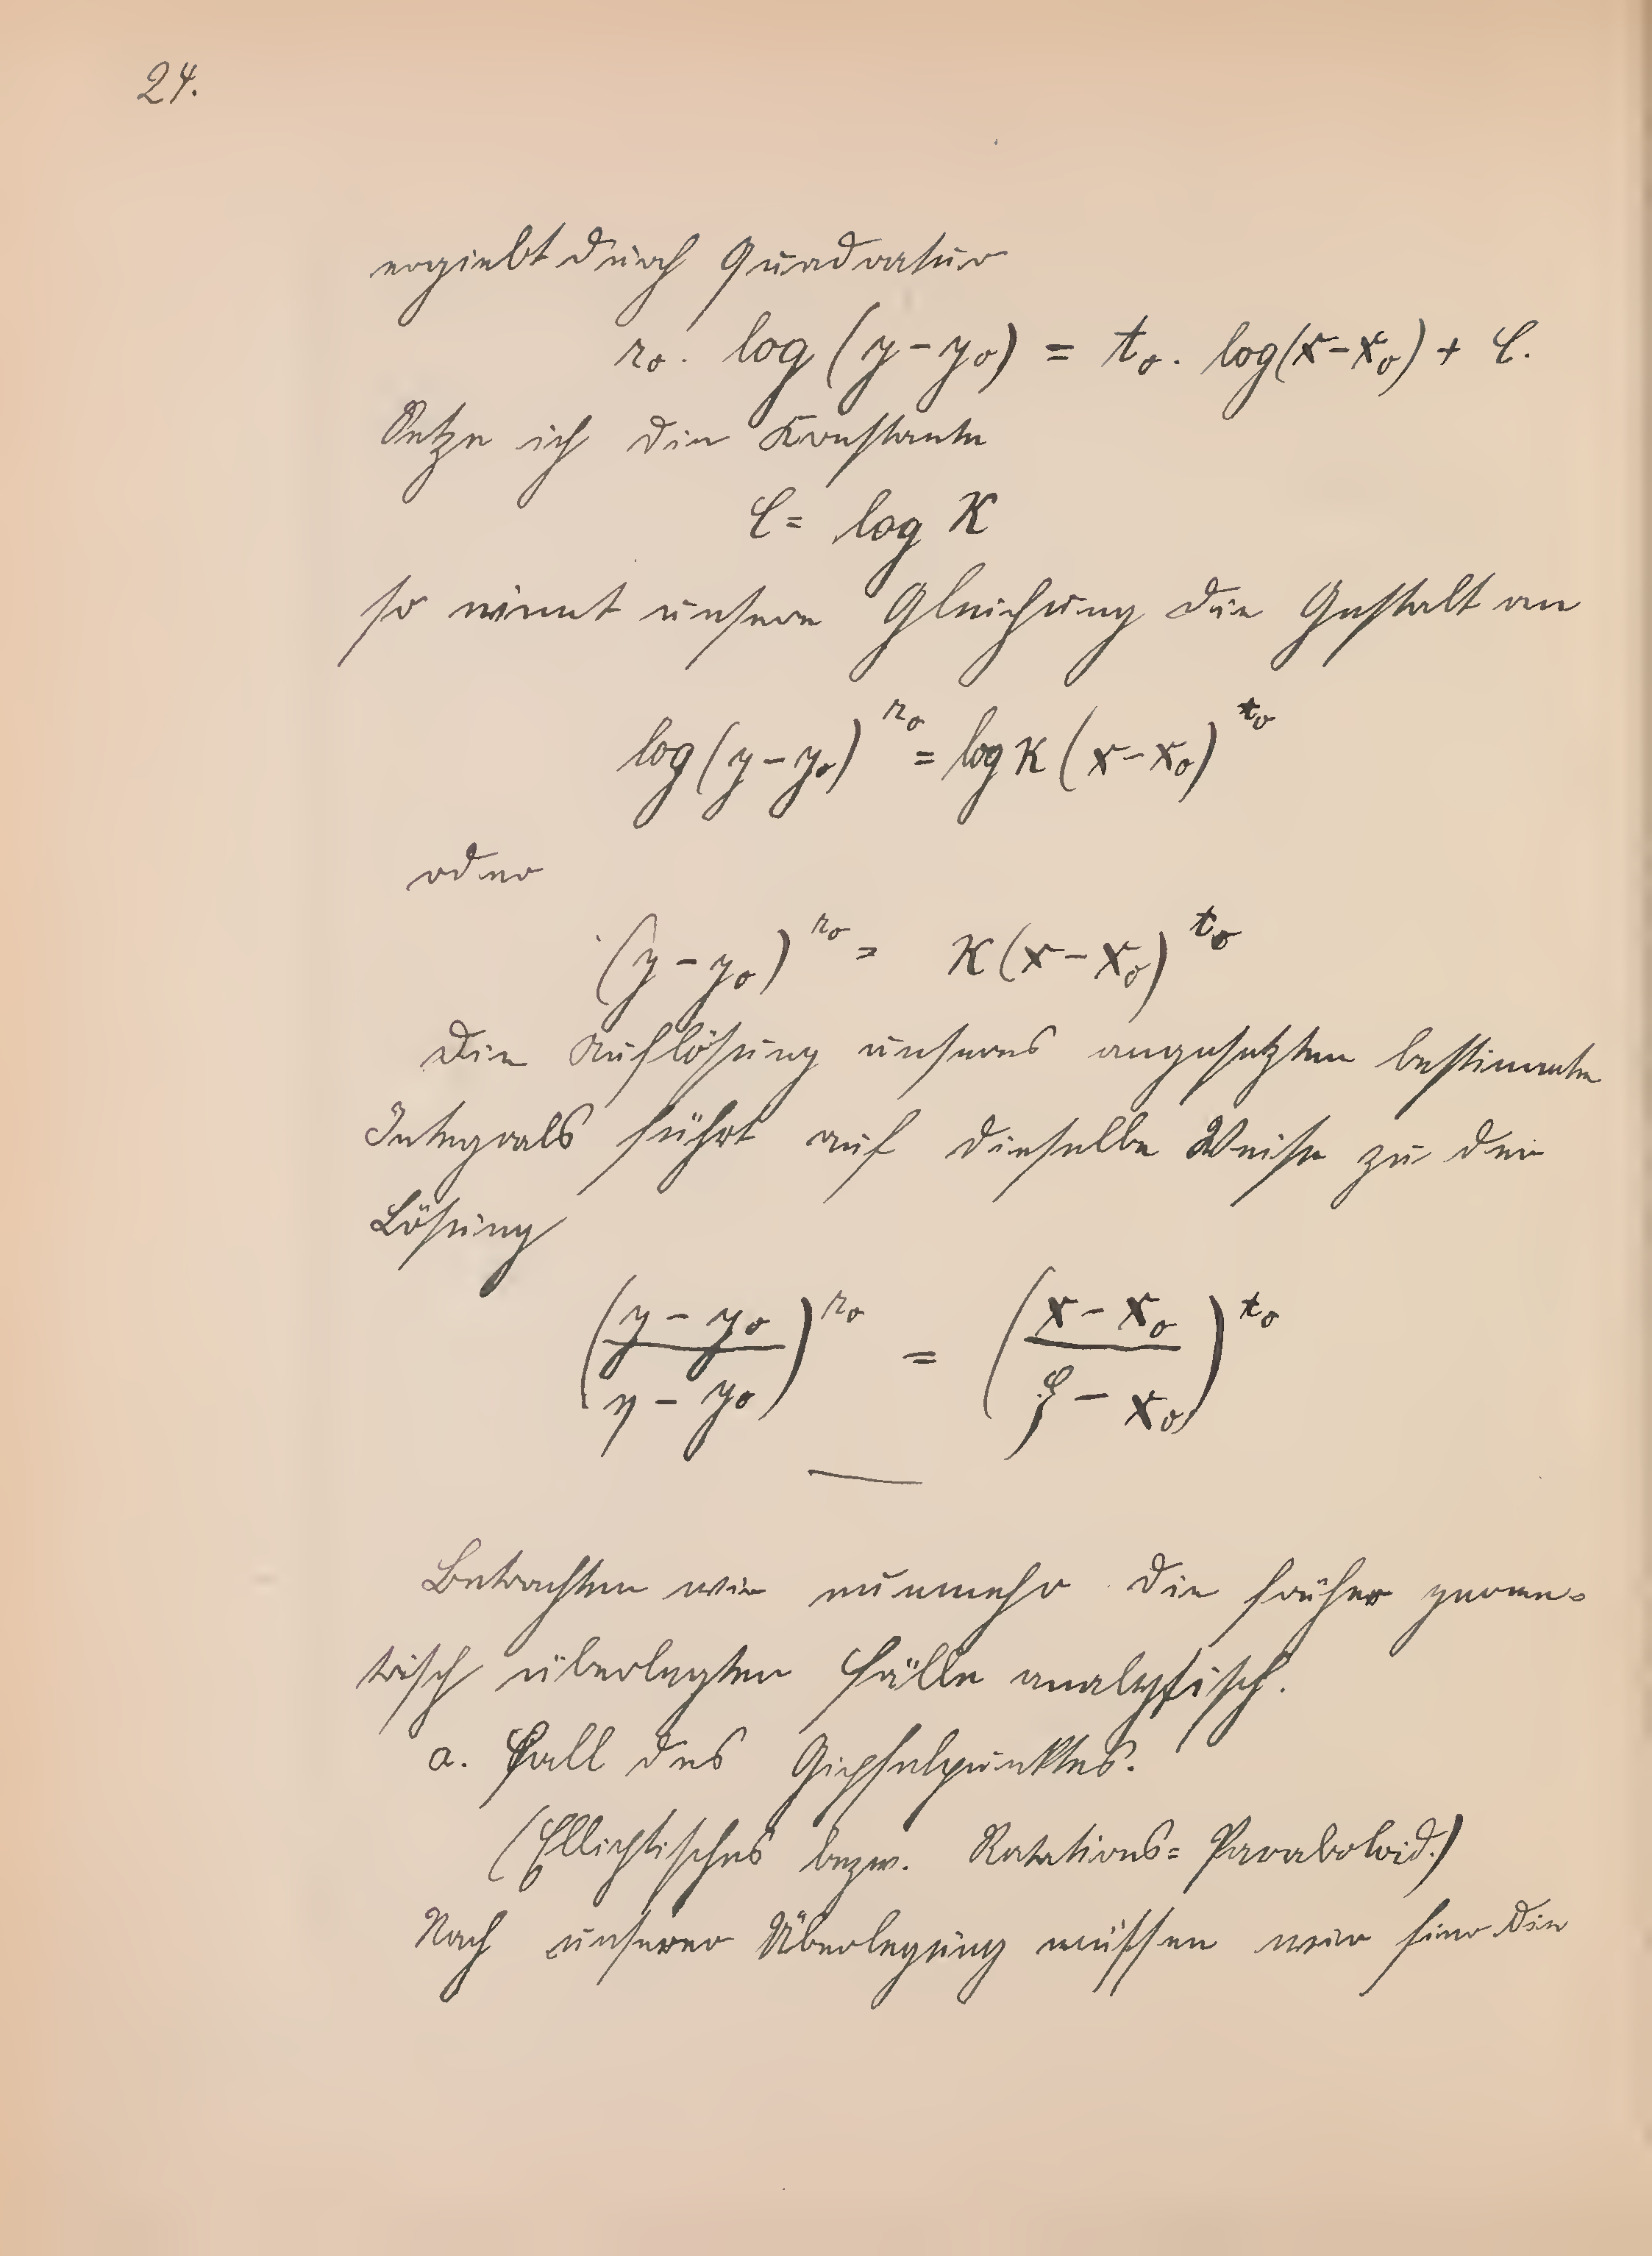 24.
ergiebt durch Quadratur
r₀. log (y-y₀) = t₀. log(x-x₀) + C.
Setze ich die Konstante
C = log K
so nimmt unsere Gleichung die Gestalt an
log (y-y₀)^{r₀} = log K (x-x₀)^{t₀}
oder
(y-y₀)^{r₀} = K(x-x₀)^{t₀}
Die Auflösung unseres angesetzten bestimmten
Integrals führt auf dieselbe Weise zu der
Lösung
((y-y₀)/(η-y₀))^{r₀} = ((x-x₀)/(ξ-x₀))^{t₀}
Betrachten wir nunmehr die früher geome-
trisch überlegten Fälle analytisch.
a. Fall des Gipfelpunktes.
(Elliptisches bezw. Rotations= Paraboloid.)
Nach unserer Überlegung müssen wir hier die